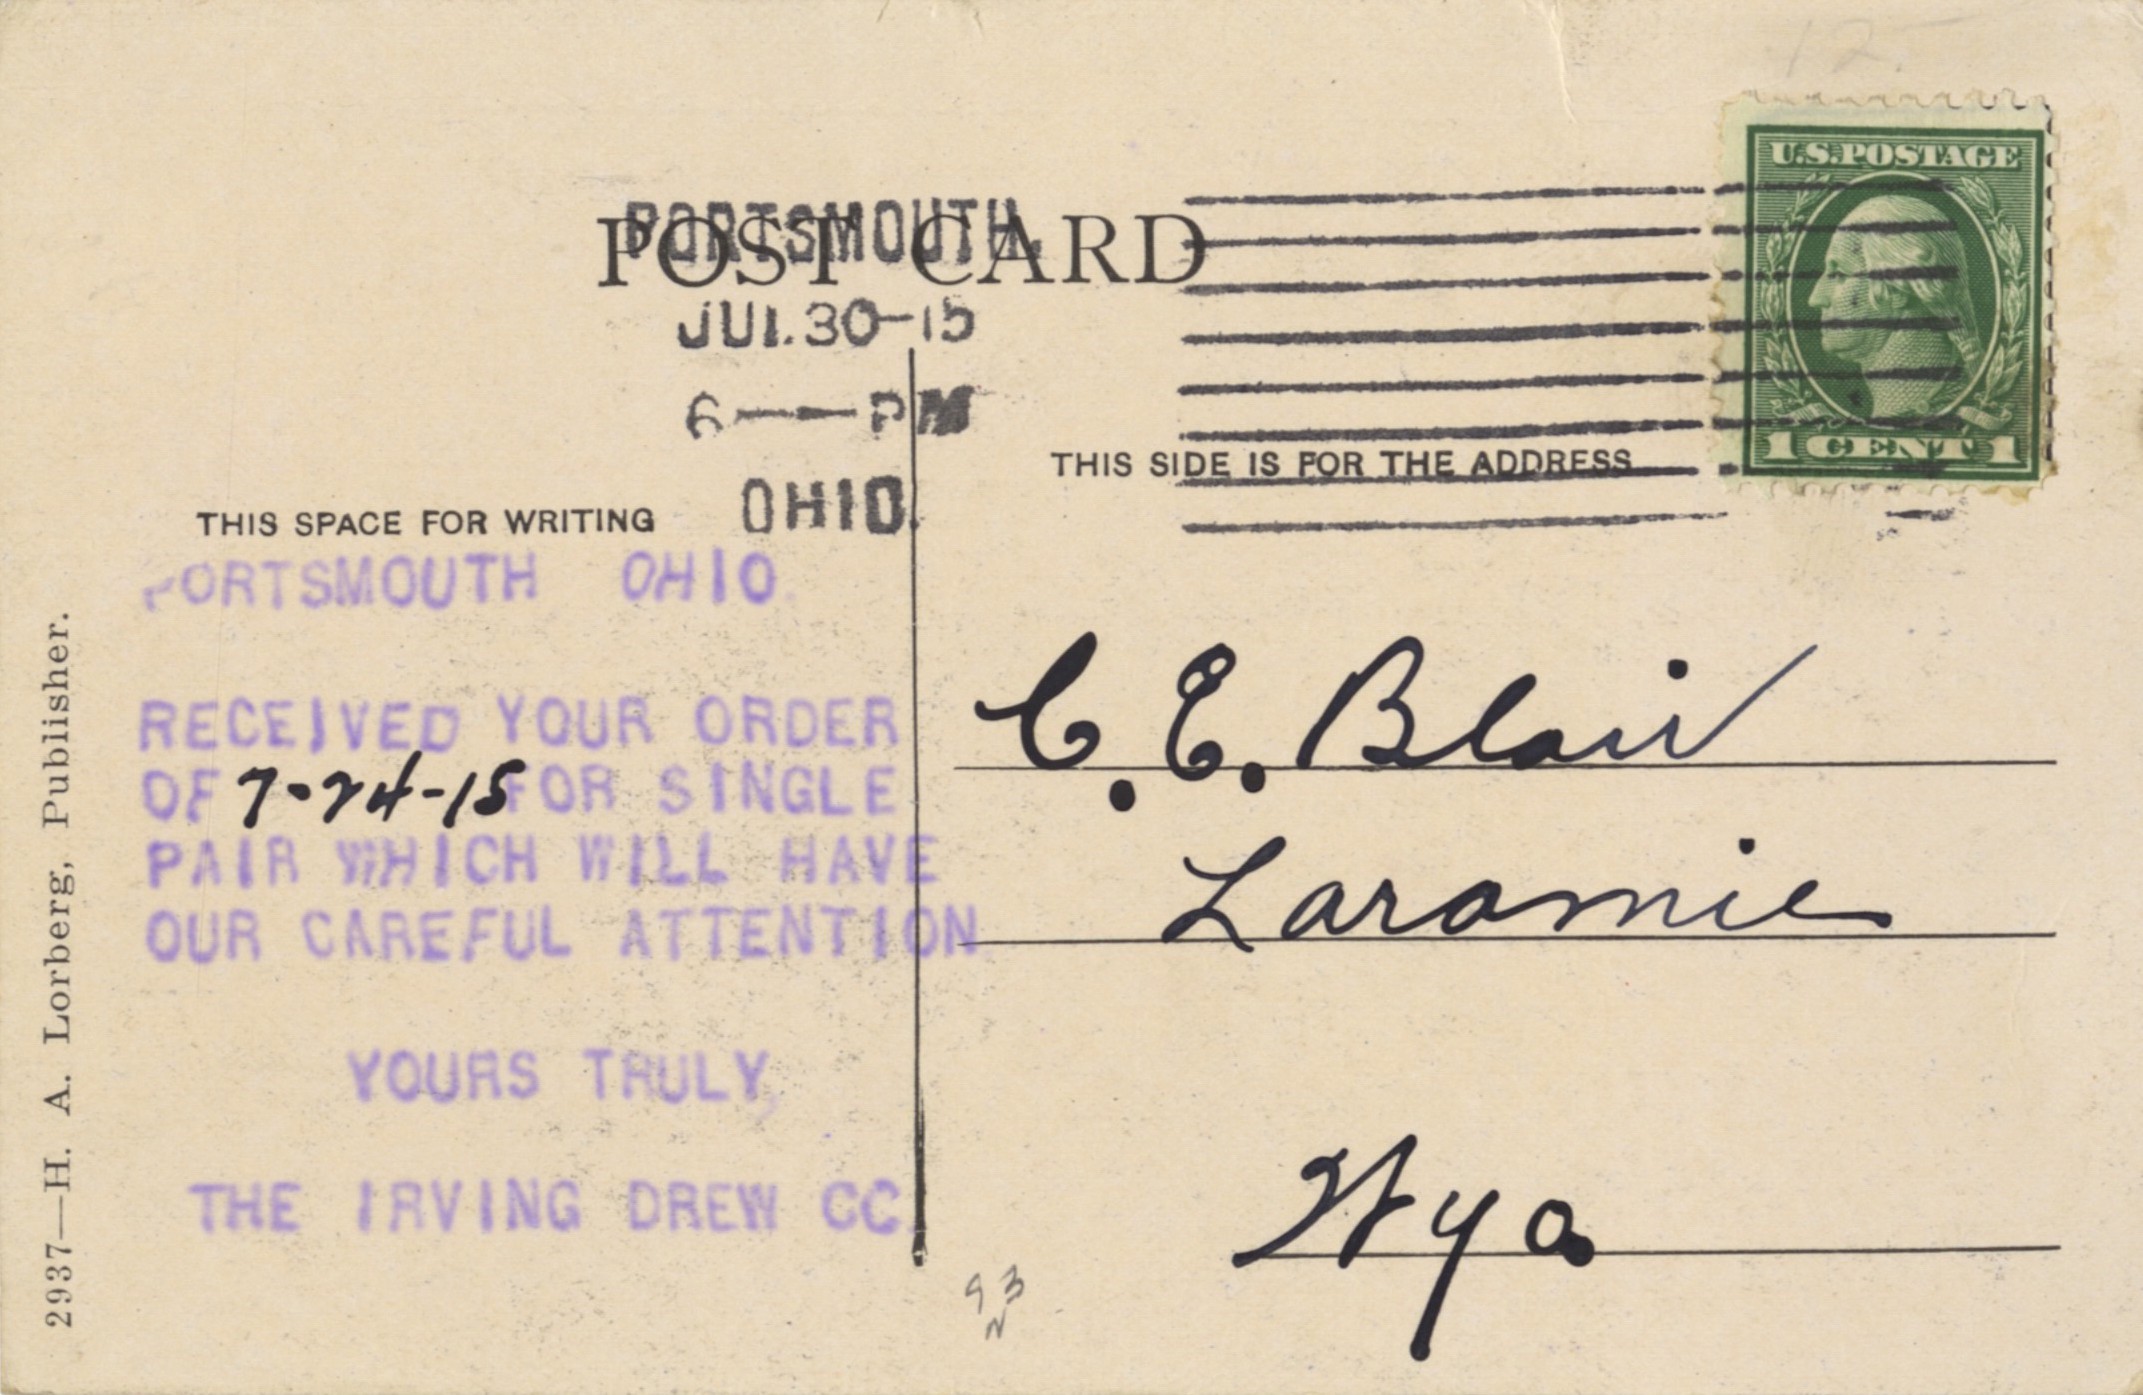 12
U.S. POSTAGE
1 CENT 1
POST CARD
PORTSMOUTH,
JUL 30-15
6 — PM
OHIO.
THIS SIDE IS FOR THE ADDRESS
THIS SPACE FOR WRITING
PORTSMOUTH OHIO.
RECEIVED YOUR ORDER
OF 7-24-15 FOR SINGLE
PAIR WHICH WILL HAVE
OUR CAREFUL ATTENTION
YOURS TRULY,
THE IRVING DREW CO.
C. E. Blair
Laramie
Wyo.
93
N
2937—H. A. Lorberg, Publisher.